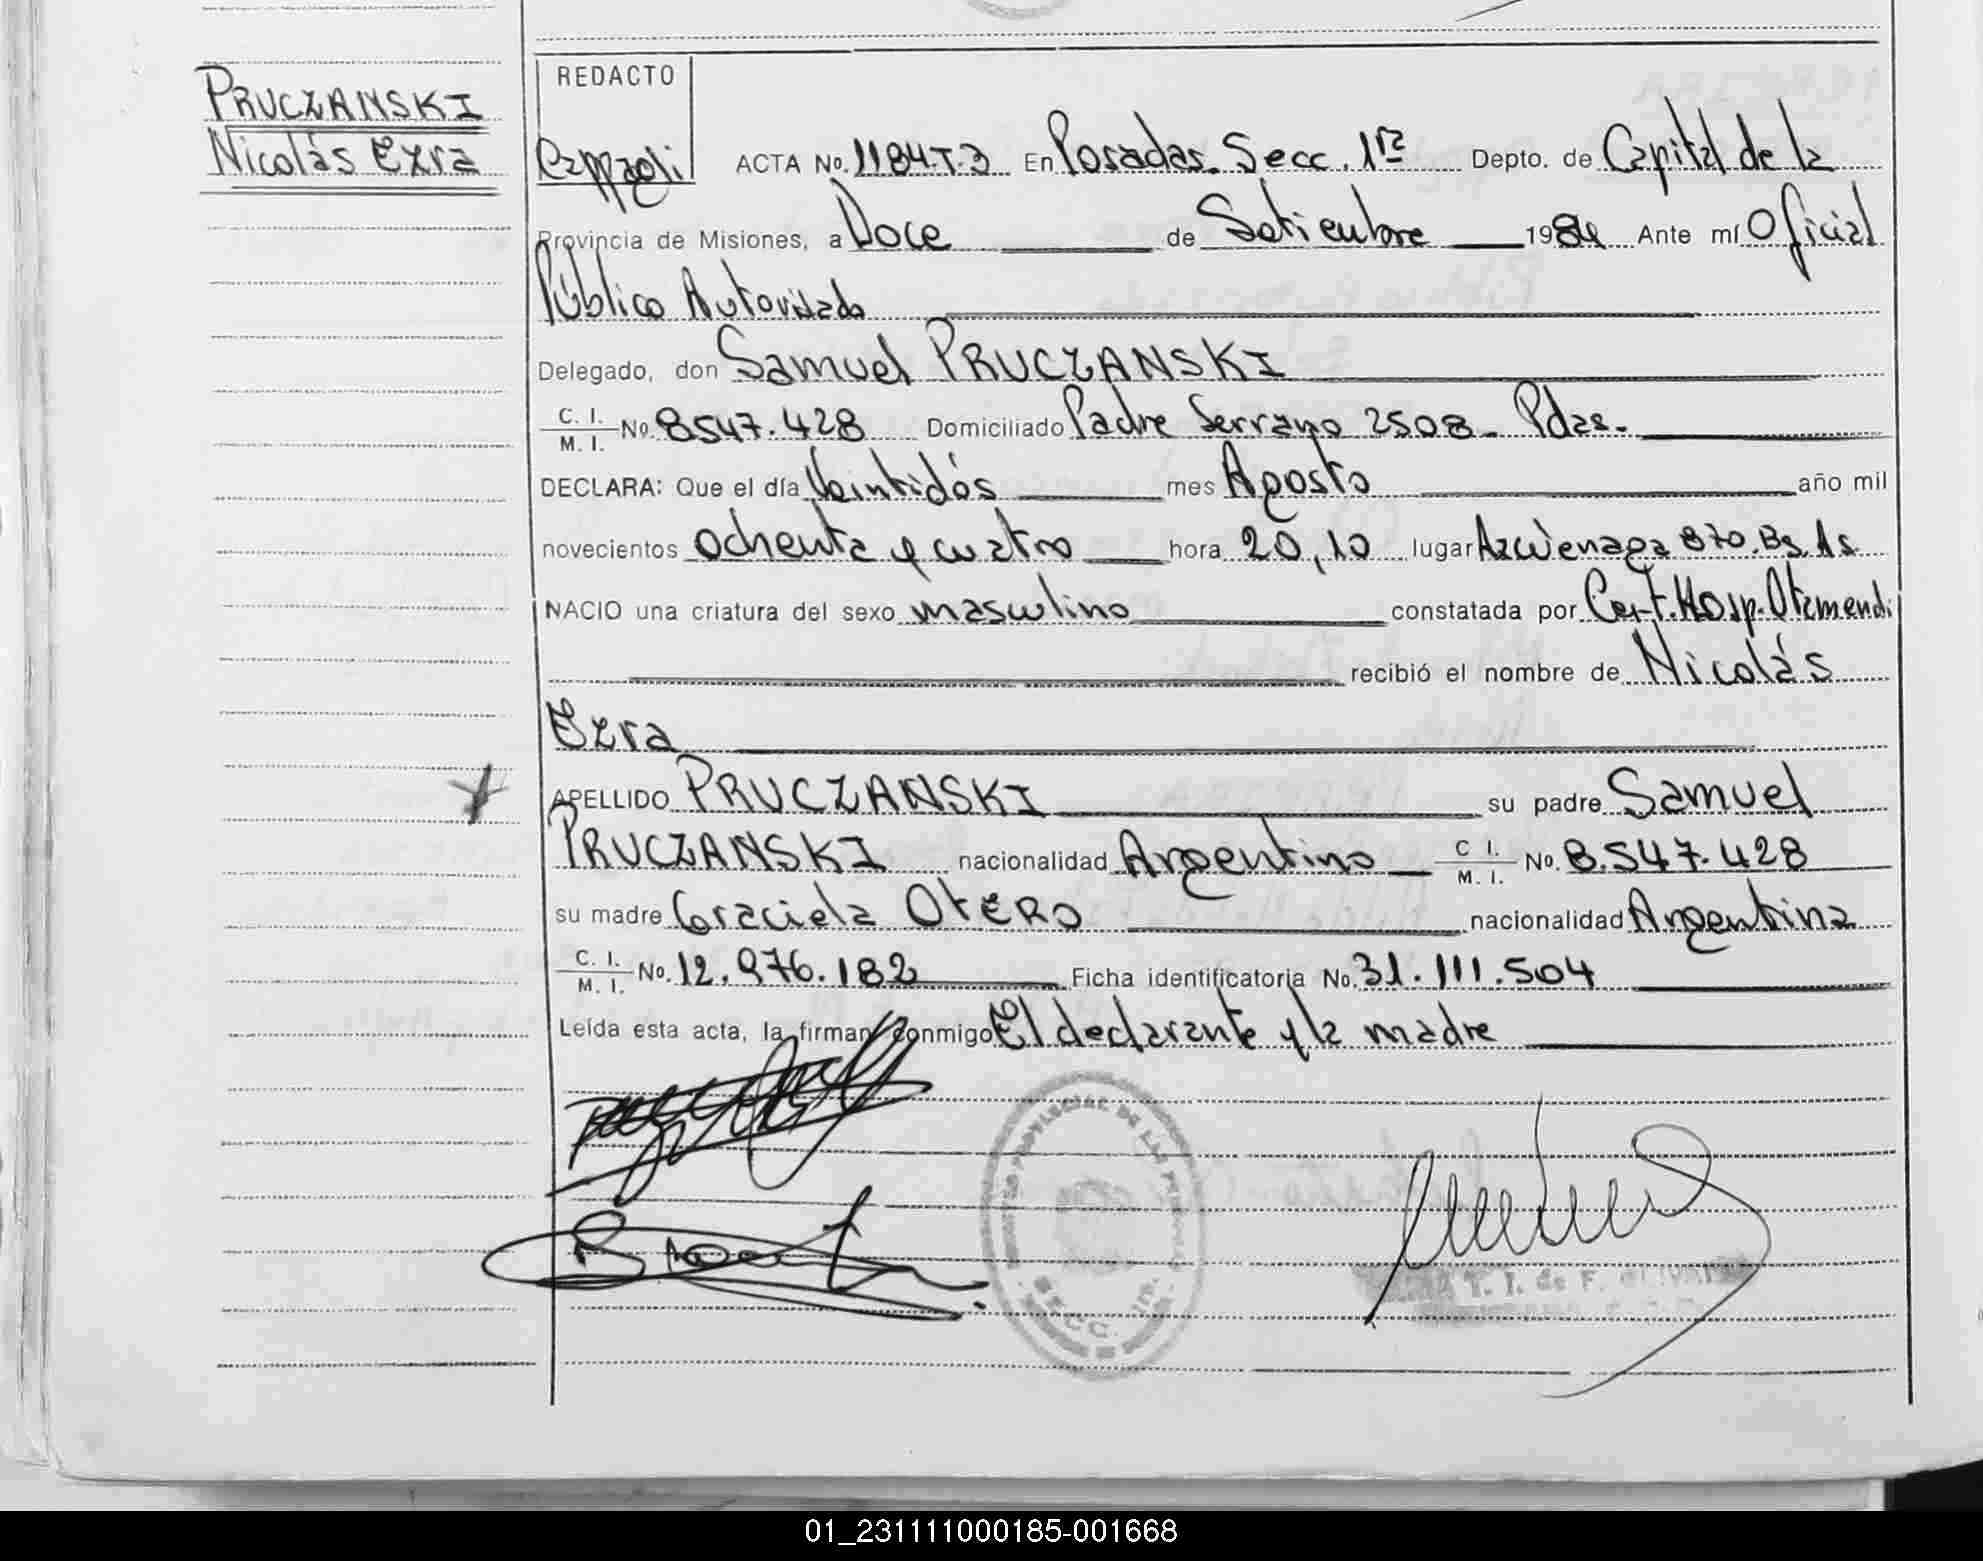 PRUCZANSKI
Nicolás Ezra
REDACTO
ACTA No. 1184-T.3 En Posadas. Secc. 1ra Depto. de Capital de la
Provincia de Misiones, a Doce de Setiembre 1984 Ante mí Oficial
Público Autorizado
Delegado, don Samuel PRUCZANSKI
C. I.
M. I. No. 8547.428 Domiciliado Padre Serrano 2508- Pdas.
DECLARA: Que el día Veintidós mes Agosto año mil
novecientos ochenta y cuatro hora 20,10 lugar Azcuénaga 870. Bs. As.
NACIO una criatura del sexo masculino constatada por Cert. Hosp. Otamendi
recibió el nombre de Nicolás
Ezra
APELLIDO PRUCZANSKI su padre Samuel
PRUCZANSKI nacionalidad Argentino C. I. M. I. No. 8.547.428
su madre Graciela OtERO nacionalidad Argentina
C. I. M. I. No. 12.976.182 Ficha identificatoria No. 31.111.504
Leída esta acta, la firman conmigo El declarante y la madre
DE LAS
T. I. de F.
SECC. 1ra.
01_231111000185-001668